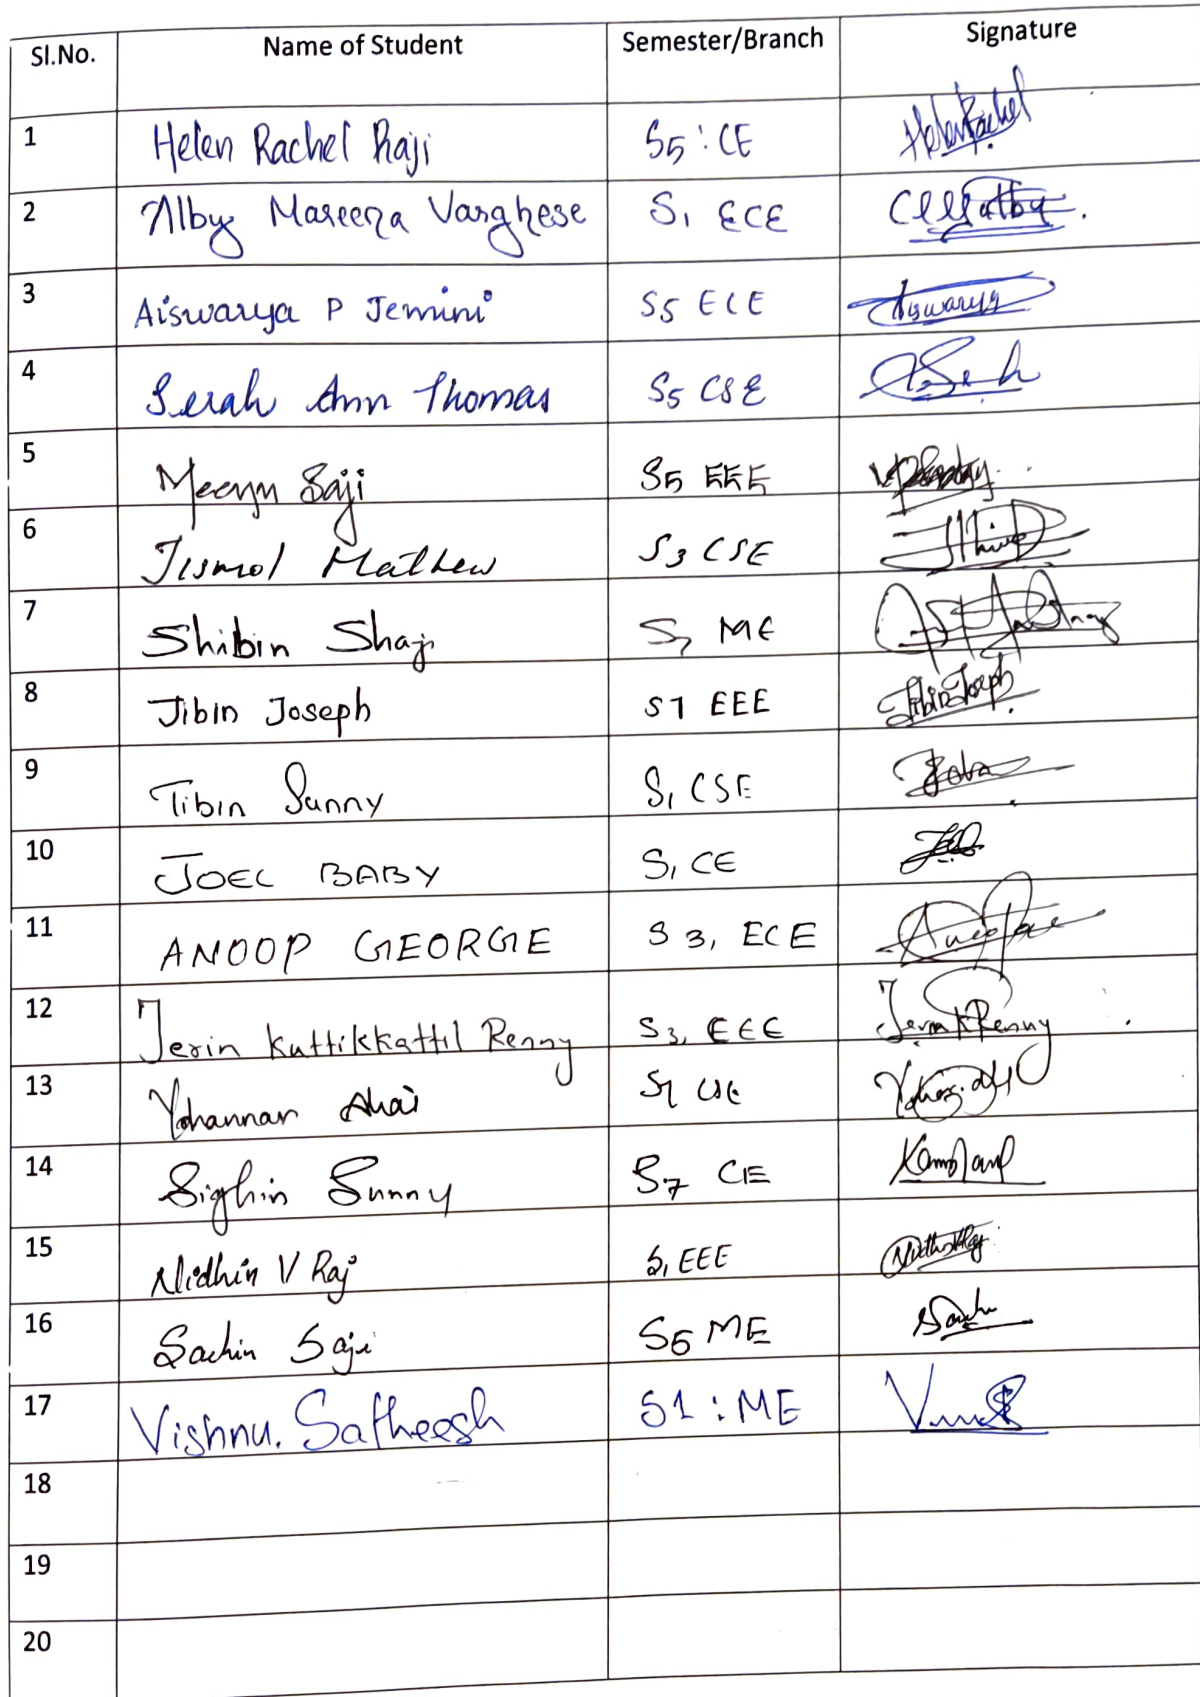 Sl.No. Name of Student Semester/Branch Signature
1 Helen Rachel Raji S5 : CE Helen Rachel
2 Alby Mareena Varghese S1 ECE
3 Aiswarya P Jemini S5 ECE Aiswarya
4 Serah Ann Thomas S5 CSE
5 Meenu Saji S5 EEE
6 Jismol Mathew S3 CSE
7 Shibin Shaji S7 ME
8 Jibin Joseph S7 EEE Jibin Joseph
9 Tibin Sunny S1 CSE
10 JOEL BABY S1 CE
11 ANOOP GEORGE S3, ECE
12 Jerin Kuttikkattil Renny S3, EEE Jerin K Renny
13 Yohannan S7 CSE
14 Sighin Sunny S7 CE
15 Nidhin V Raj S1 EEE
16 Sachin Saji S5 ME
17 Vishnu. Satheesh S1 : ME
18
19
20